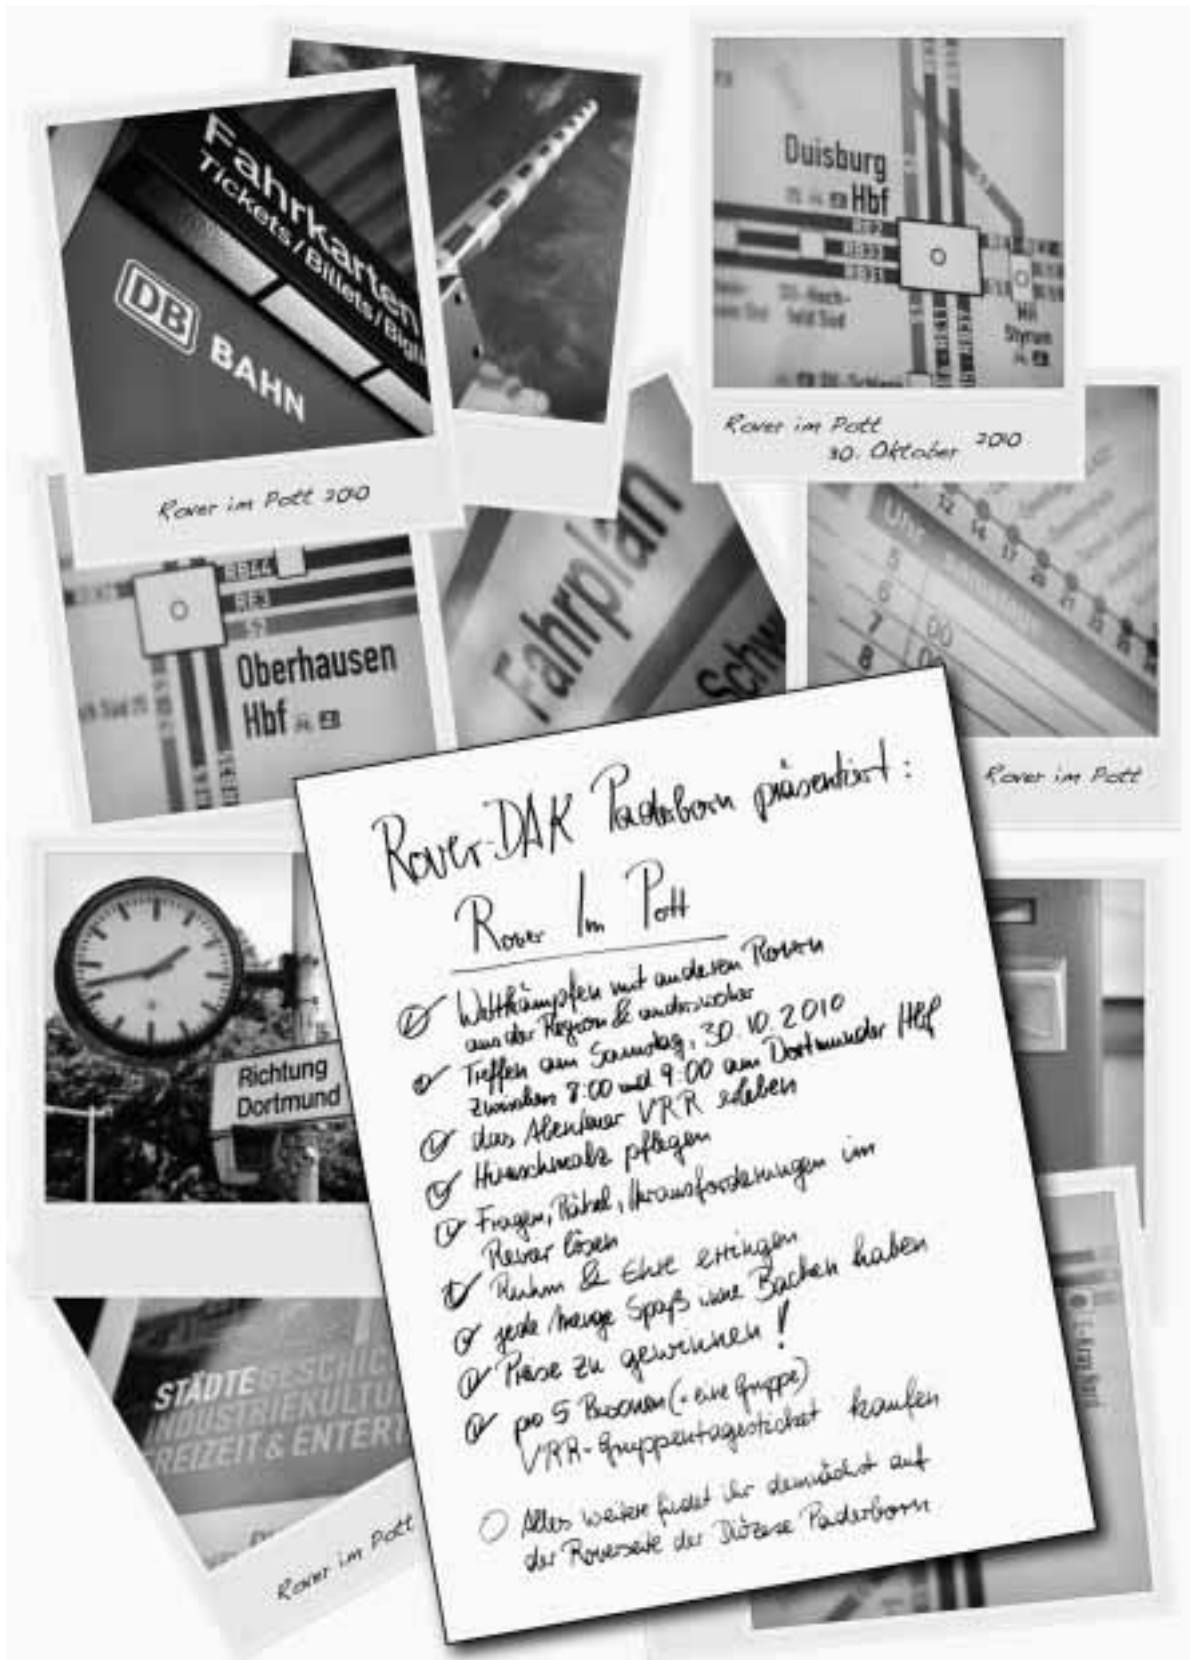 Fahrkarten
Tickets/Billets/Bigli
DB BAHN
Rover im Pott 2010
Duisburg
Hbf
RE2
RB33
RB31
Styrum
Rover im Pott
30. Oktober 2010
RB44
RE3
S2
Oberhausen
Hbf
Fahrplan
Schw
Uhr
5
6
7
8
00
12
14
17
20
21
23
25
Rover im Pott
Richtung
Dortmund
STÄDTE GESCHIC
INDUSTRIEKULTU
REIZEIT & ENTERT
Rover im Pott
Rover-DAK Paderborn präsentiert:
Rover Im Pott
Wettkämpfen mit anderen Rovern
aus der Region & anderswoher
Treffen am Samstag, 30.10.2010
zwischen 8:00 und 9:00 am Dortmunder Hbf
das Abenteuer VRR erleben
Hirnschmalz pflegen
Fragen, Rätsel, Herausforderungen im
Revier lösen
Ruhm & Ehre erringen
jede Menge Spaß inne Backen haben
Preise zu gewinnen!
pro 5 Personen (= eine Gruppe)
VRR-Gruppentagesticket kaufen
Alles weitere findet ihr demnächst auf
der Roverseite der Diözese Paderborn